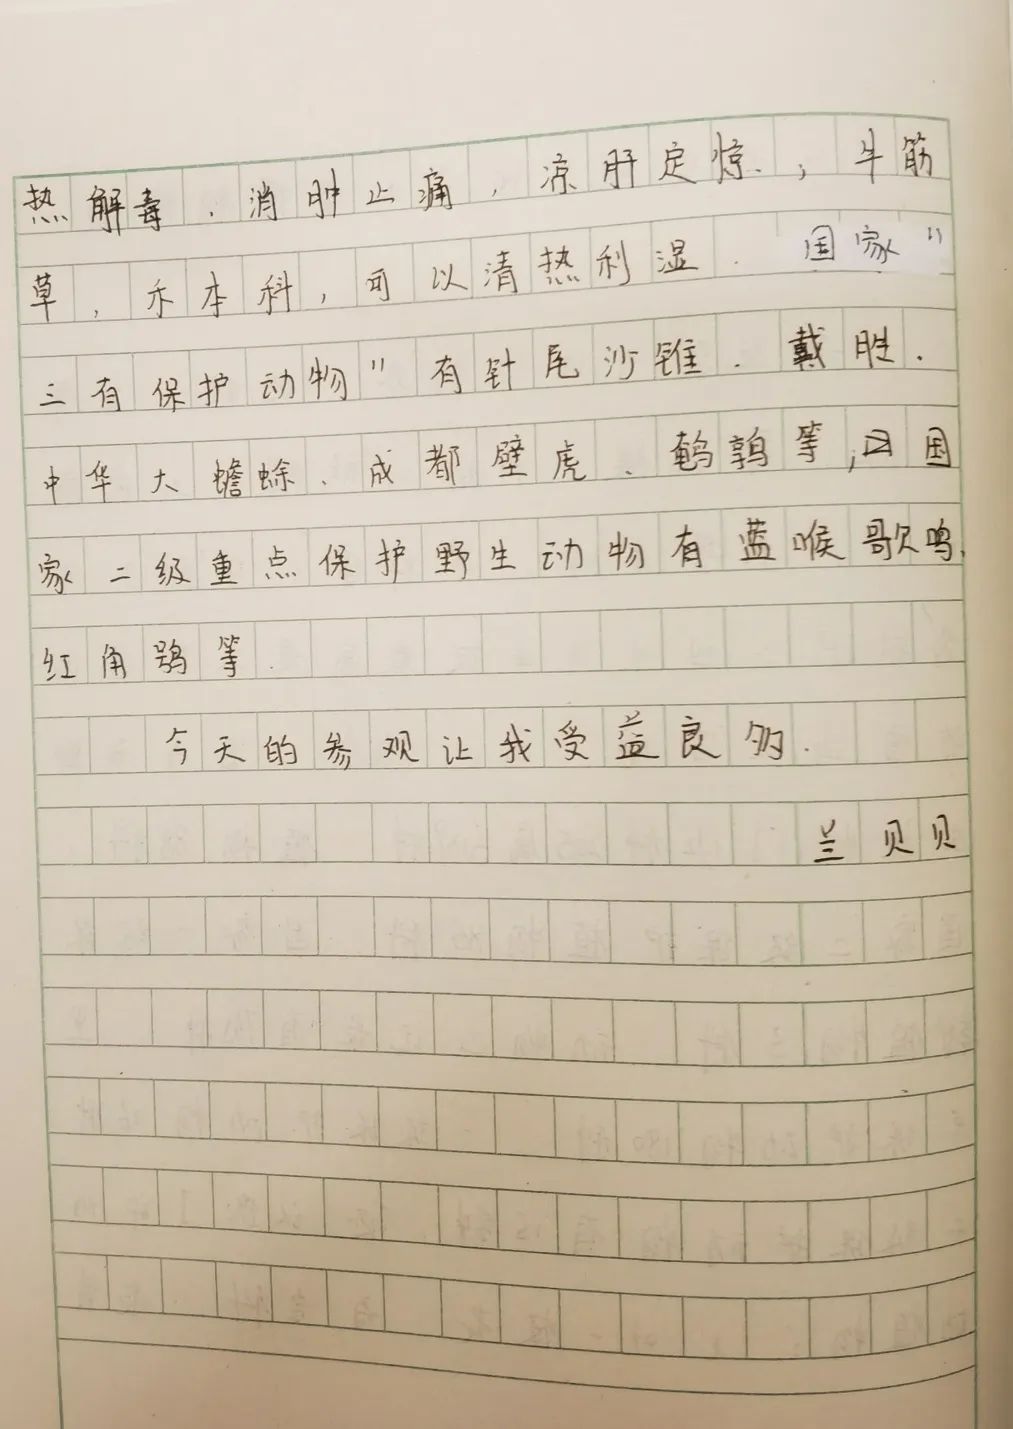 热解毒、消肿止痛，凉肝定惊.；牛筋
草，禾本科，可以清热利湿. 国家"
三有保护动物"有针尾沙锥、戴胜、
中华大蟾蜍、成都壁虎、鹌鹑等；国
家二级重点保护野生动物有蓝喉歌鸣、
红角鸮等.
今天的参观让我受益良多.
兰贝贝